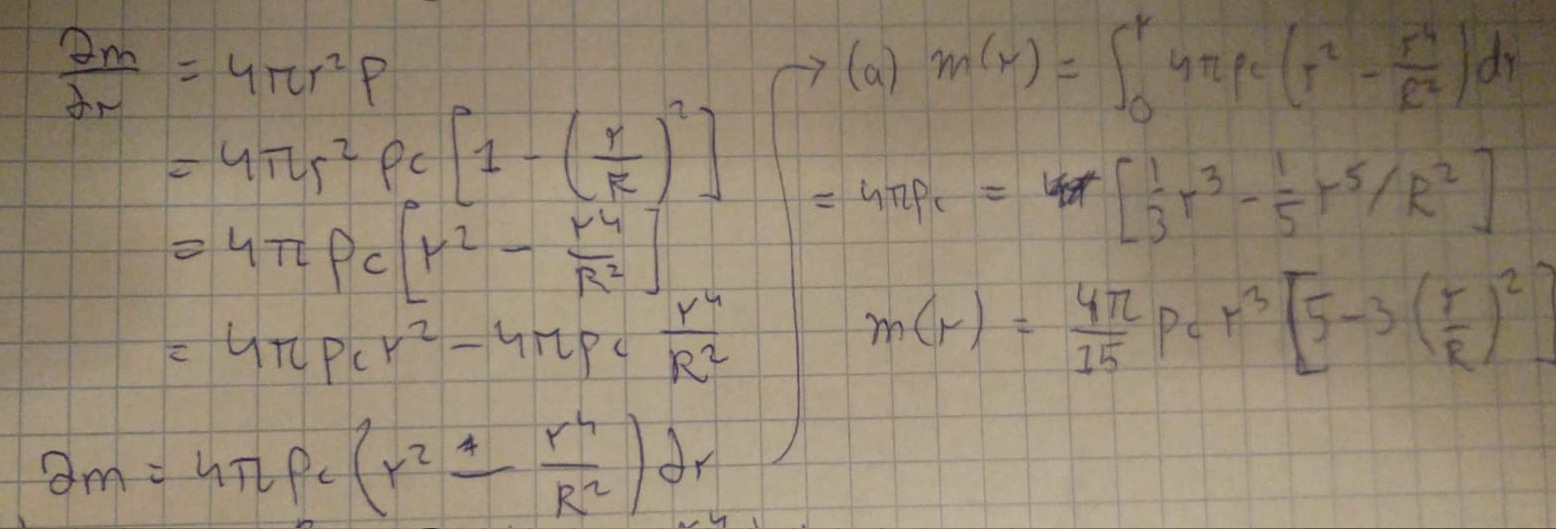 ∂m/∂r = 4πr²ρ
= 4πr² ρc [1 - (r/R)²]
= 4π ρc [r² - r⁴/R²]
= 4πρc r² - 4πρc r⁴/R²
∂m = 4π ρc (r² - r⁴/R²) ∂r
→ (a) m(r) = ∫₀ʳ 4πρc (r² - r⁴/R²) dr
= 4πρc = [1/3 r³ - 1/5 r⁵/R²]
m(r) = 4π/15 ρc r³ [5 - 3 (r/R)²]